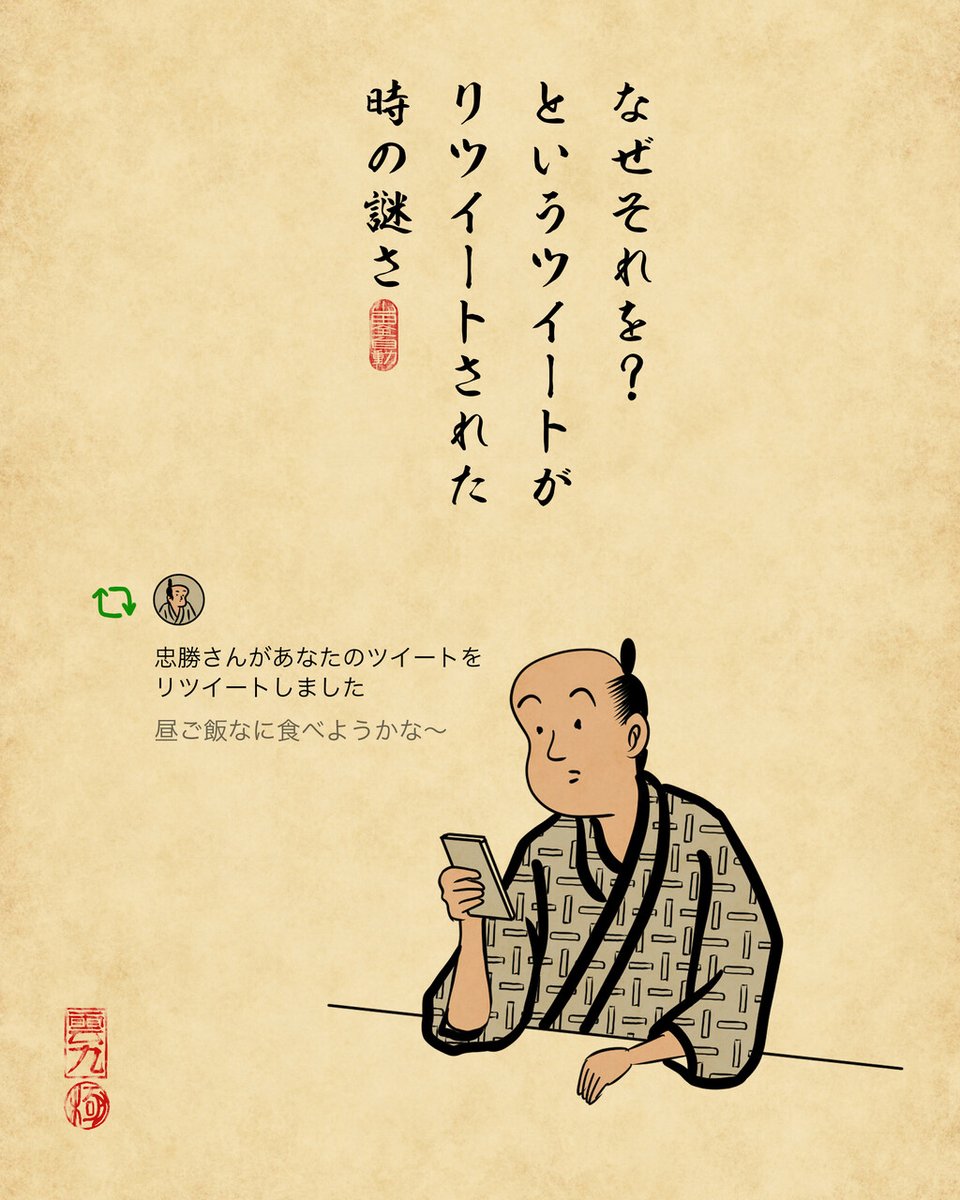 なぜそれを？
というツイートが
リツイートされた
時の謎さ
忠勝さんがあなたのツイートを
リツイートしました
昼ご飯なに食べようかな〜